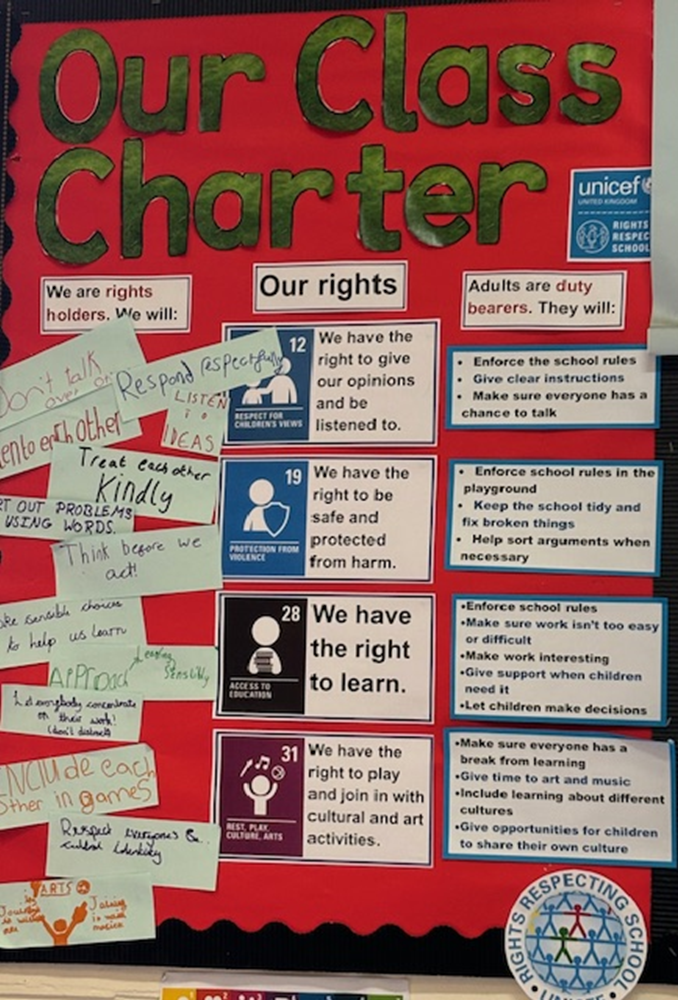 Our Class
Charter
unicef
UNITED KINGDOM
RIGHTS
RESPEC
SCHOOL
We are rights
holders. We will:
Don't talk
over
Respond respectfully
LISTEN
to
IDEAS
ten to each other
Treat each other
Kindly
RT OUT PROBLEMS
USING WORDS.
Think before we
act!
ke sensible choices
to help us learn
APPROACH
Learning
Sensibly
Let everybody concentrate
on their work!
(don't distract)
INCLUDE each
other in games
Respect everyones
cultural identity
ARTS
Joining
in with
Our rights
12
RESPECT FOR
CHILDREN'S VIEWS
We have the
right to give
our opinions
and be
listened to.
19
PROTECTION FROM
VIOLENCE
We have the
right to be
safe and
protected
from harm.
28
ACCESS TO
EDUCATION
We have
the right
to learn.
31
REST, PLAY,
CULTURE, ARTS
We have the
right to play
and join in with
cultural and art
activities.
Adults are duty
bearers. They will:
• Enforce the school rules
• Give clear instructions
• Make sure everyone has a
chance to talk
• Enforce school rules in the
playground
• Keep the school tidy and
fix broken things
• Help sort arguments when
necessary
•Enforce school rules
•Make sure work isn't too easy
or difficult
•Make work interesting
•Give support when children
need it
•Let children make decisions
•Make sure everyone has a
break from learning
•Give time to art and music
•Include learning about different
cultures
•Give opportunities for children
to share their own culture
RIGHTS RESPECTING SCHOOL